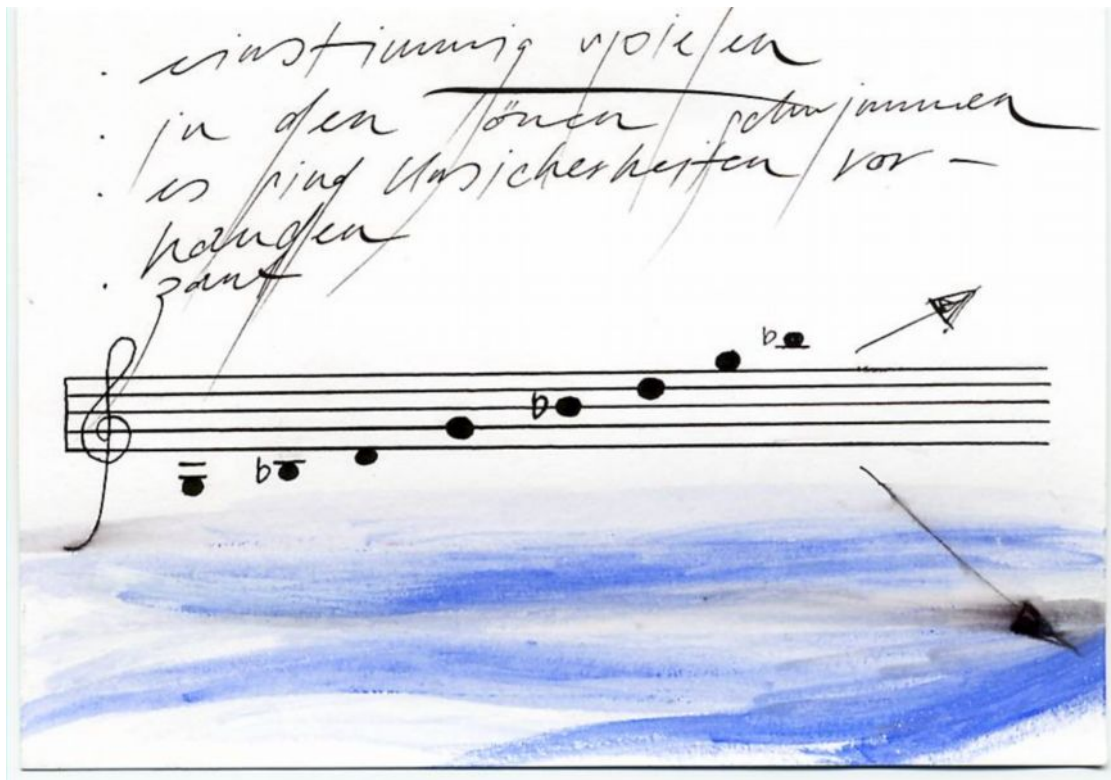 . einstimmig spielen
. in den Tönen schwimmen
. es sind Unsicherheiten vor-
handen
. zart